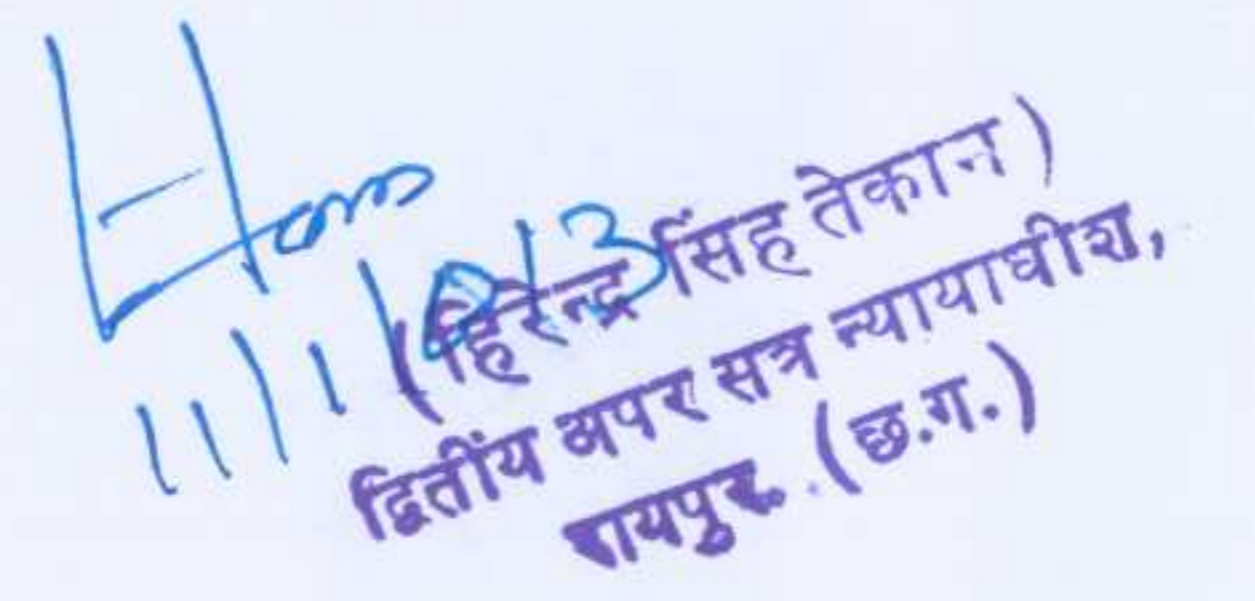 11/1/2013
(हिरेन्द्र सिंह तेकान)
द्वितींय अपर सत्र न्यायाधीश,
रायपुर (छ.ग.)